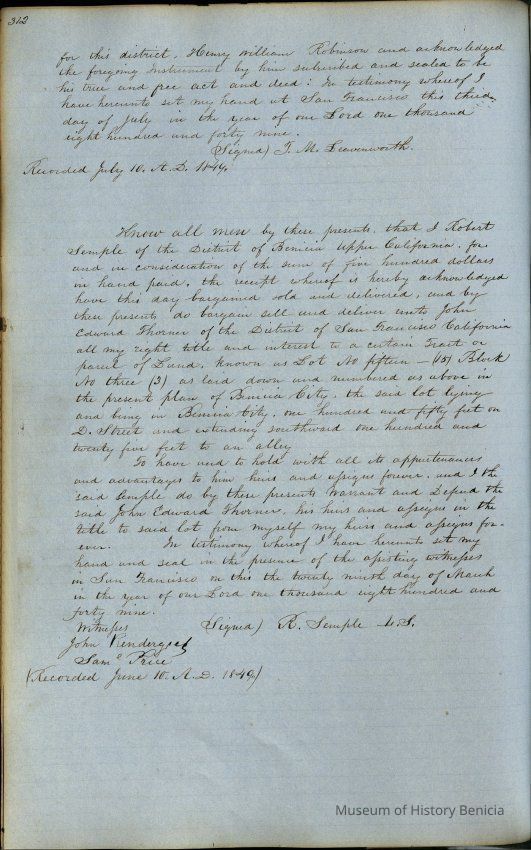 312
for this district, Henry William Robinson and acknowledged
the foregoing instrument by him subscribed and sealed to be
his true and free act and deed: In testimony whereof I
have hereunto set my hand at San Francisco this third
day of July in the year of our Lord one thousand
eight hundred and forty nine.
(Signed) T. M. Leavenworth.
Recorded July 10. A.D. 1849.
Know all men by these presents, that I Robert
Semple of the District of Benicia Upper California, for
and in consideration of the sum of five hundred dollars
in hand paid, the receipt whereof is hereby acknowledged
have this day bargained sold and delivered, and by
these presents do bargain sell and deliver unto John
Edward Thorner of the District of San Francisco California
all my right title and interest to a certain tract or
parcel of Land, known as Lot No fifteen - (15) Block
No three (3) as laid down and numbered as above in
the present plan of Benicia City, the said lot lying
and being in Benicia City, one hundred and fifty feet on
D. Street and extending southward one hundred and
twenty five feet to an alley
To have and to hold with all its appurtenances
and advantages to him heirs and assigns forever, and I the
said Semple do by these presents Warrant and Defend the
said John Edward Thorner, his heirs and assigns in the
title to said lot from myself my heirs and assigns for-
ever. In testimony whereof I have hereunto set my
hand and seal in the presence of the witnesses
in San Francisco on this the twenty ninth day of March
in the year of our Lord one thousand eight hundred and
forty nine.
Witness (Signed) R. Semple L.S.
John
Saml Price
(Recorded June 10. A.D. 1849)
Museum of History Benicia